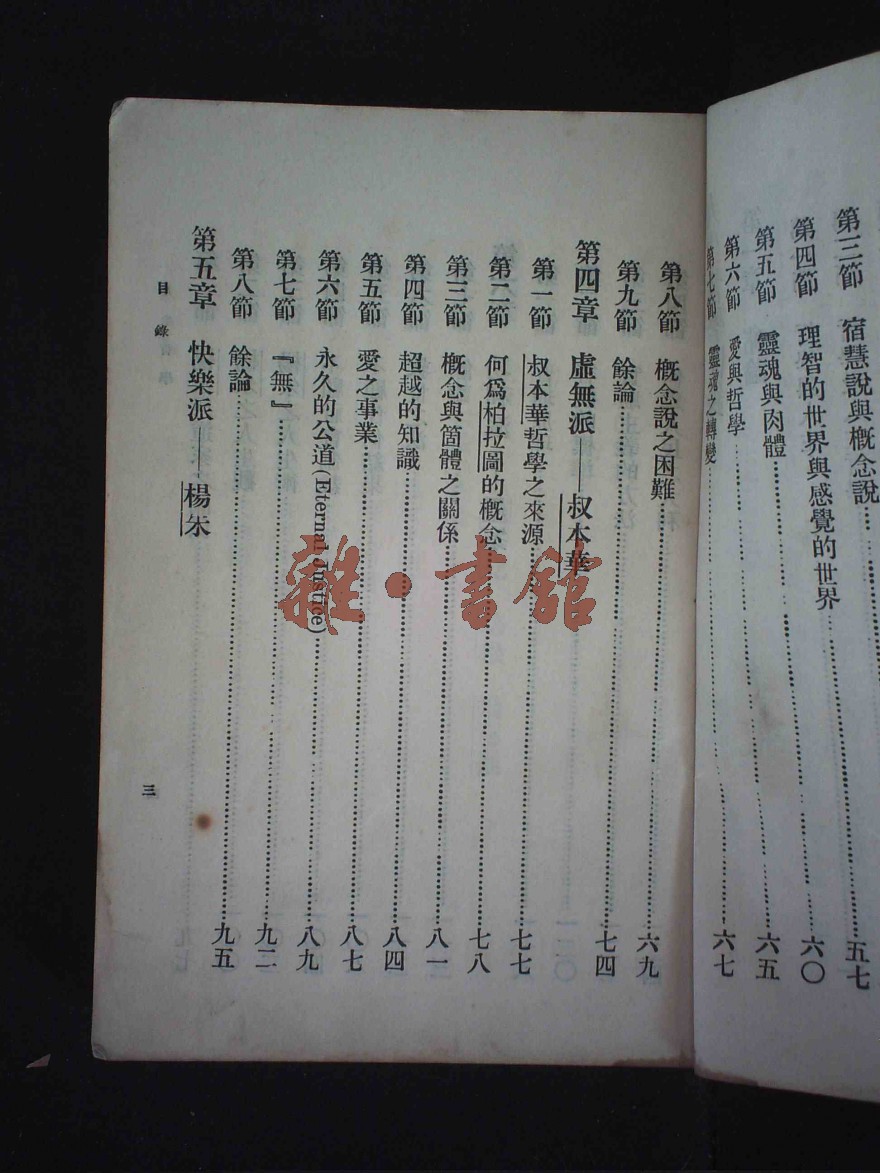 第三節　宿慧說與概念說……五七
第四節　理智的世界與感覺的世界……六〇
第五節　靈魂與肉體……六五
第六節　愛與哲學……
第七節　靈魂之轉變……六七
第八節　概念說之困難……六九
第九節　餘論……七四
第四章　虛無派——叔本華
第一節　叔本華哲學之來源……七七
第二節　何爲柏拉圖的概念……七八
第三節　概念與箇體之關係……八一
第四節　超越的知識……八四
第五節　愛之事業……八七
第六節　永久的公道(Eternal Justice)……八九
第七節　『無』……九二
第八節　餘論……九五
第五章　快樂派——楊朱
目錄
三
雜·書館